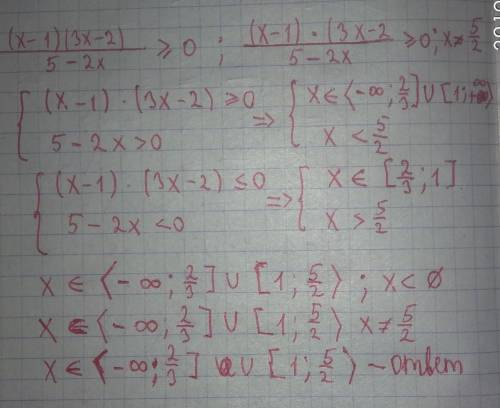 (x-1)(3x-2)/5-2x ≥ 0 ; (x-1)·(3x-2/5-2x ≥ 0; x ≠ 5/2
{ (x-1)·(3x-2) ≥ 0 => { x ∈ (-∞; 2/3] ∪ [1; +∞)
5-2x > 0 x < 5/2
{ (x-1)·(3x-2) ≤ 0 => { x ∈ [2/3; 1]
5-2x < 0 x > 5/2
x ∈ (-∞; 2/3] ∪ [1; 5/2) ; x < ∅
x ∈ (-∞; 2/3] ∪ [1; 5/2) x ≠ 5/2
x ∈ (-∞; 2/3] ∪ [1; 5/2) - ответ